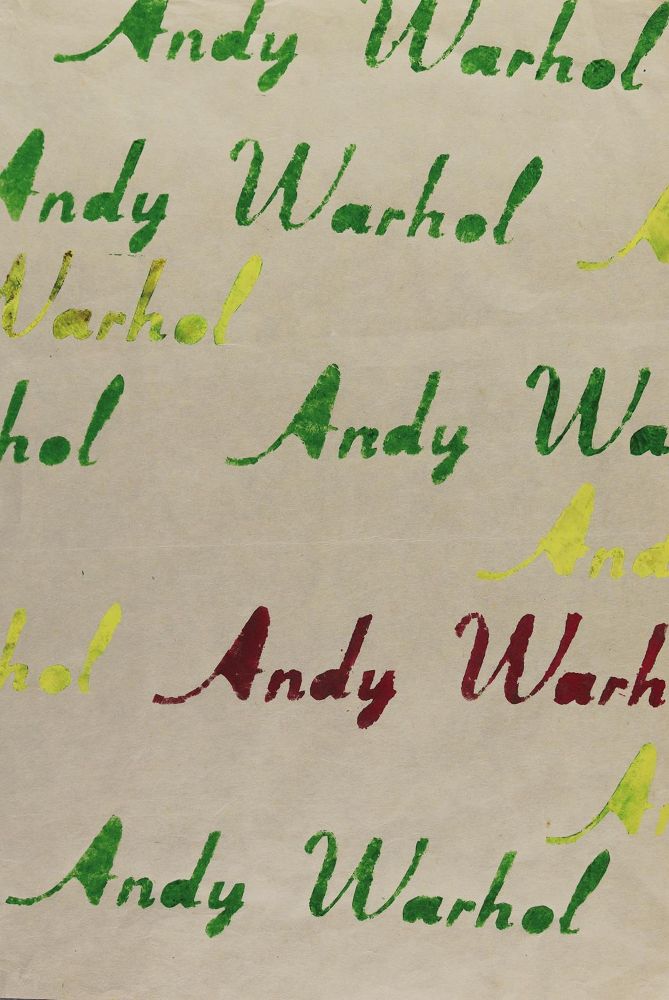 Andy Warhol
Andy Warhol A
Warhol
hol Andy Wa
And
hol Andy Warh
An
Andy Warhol